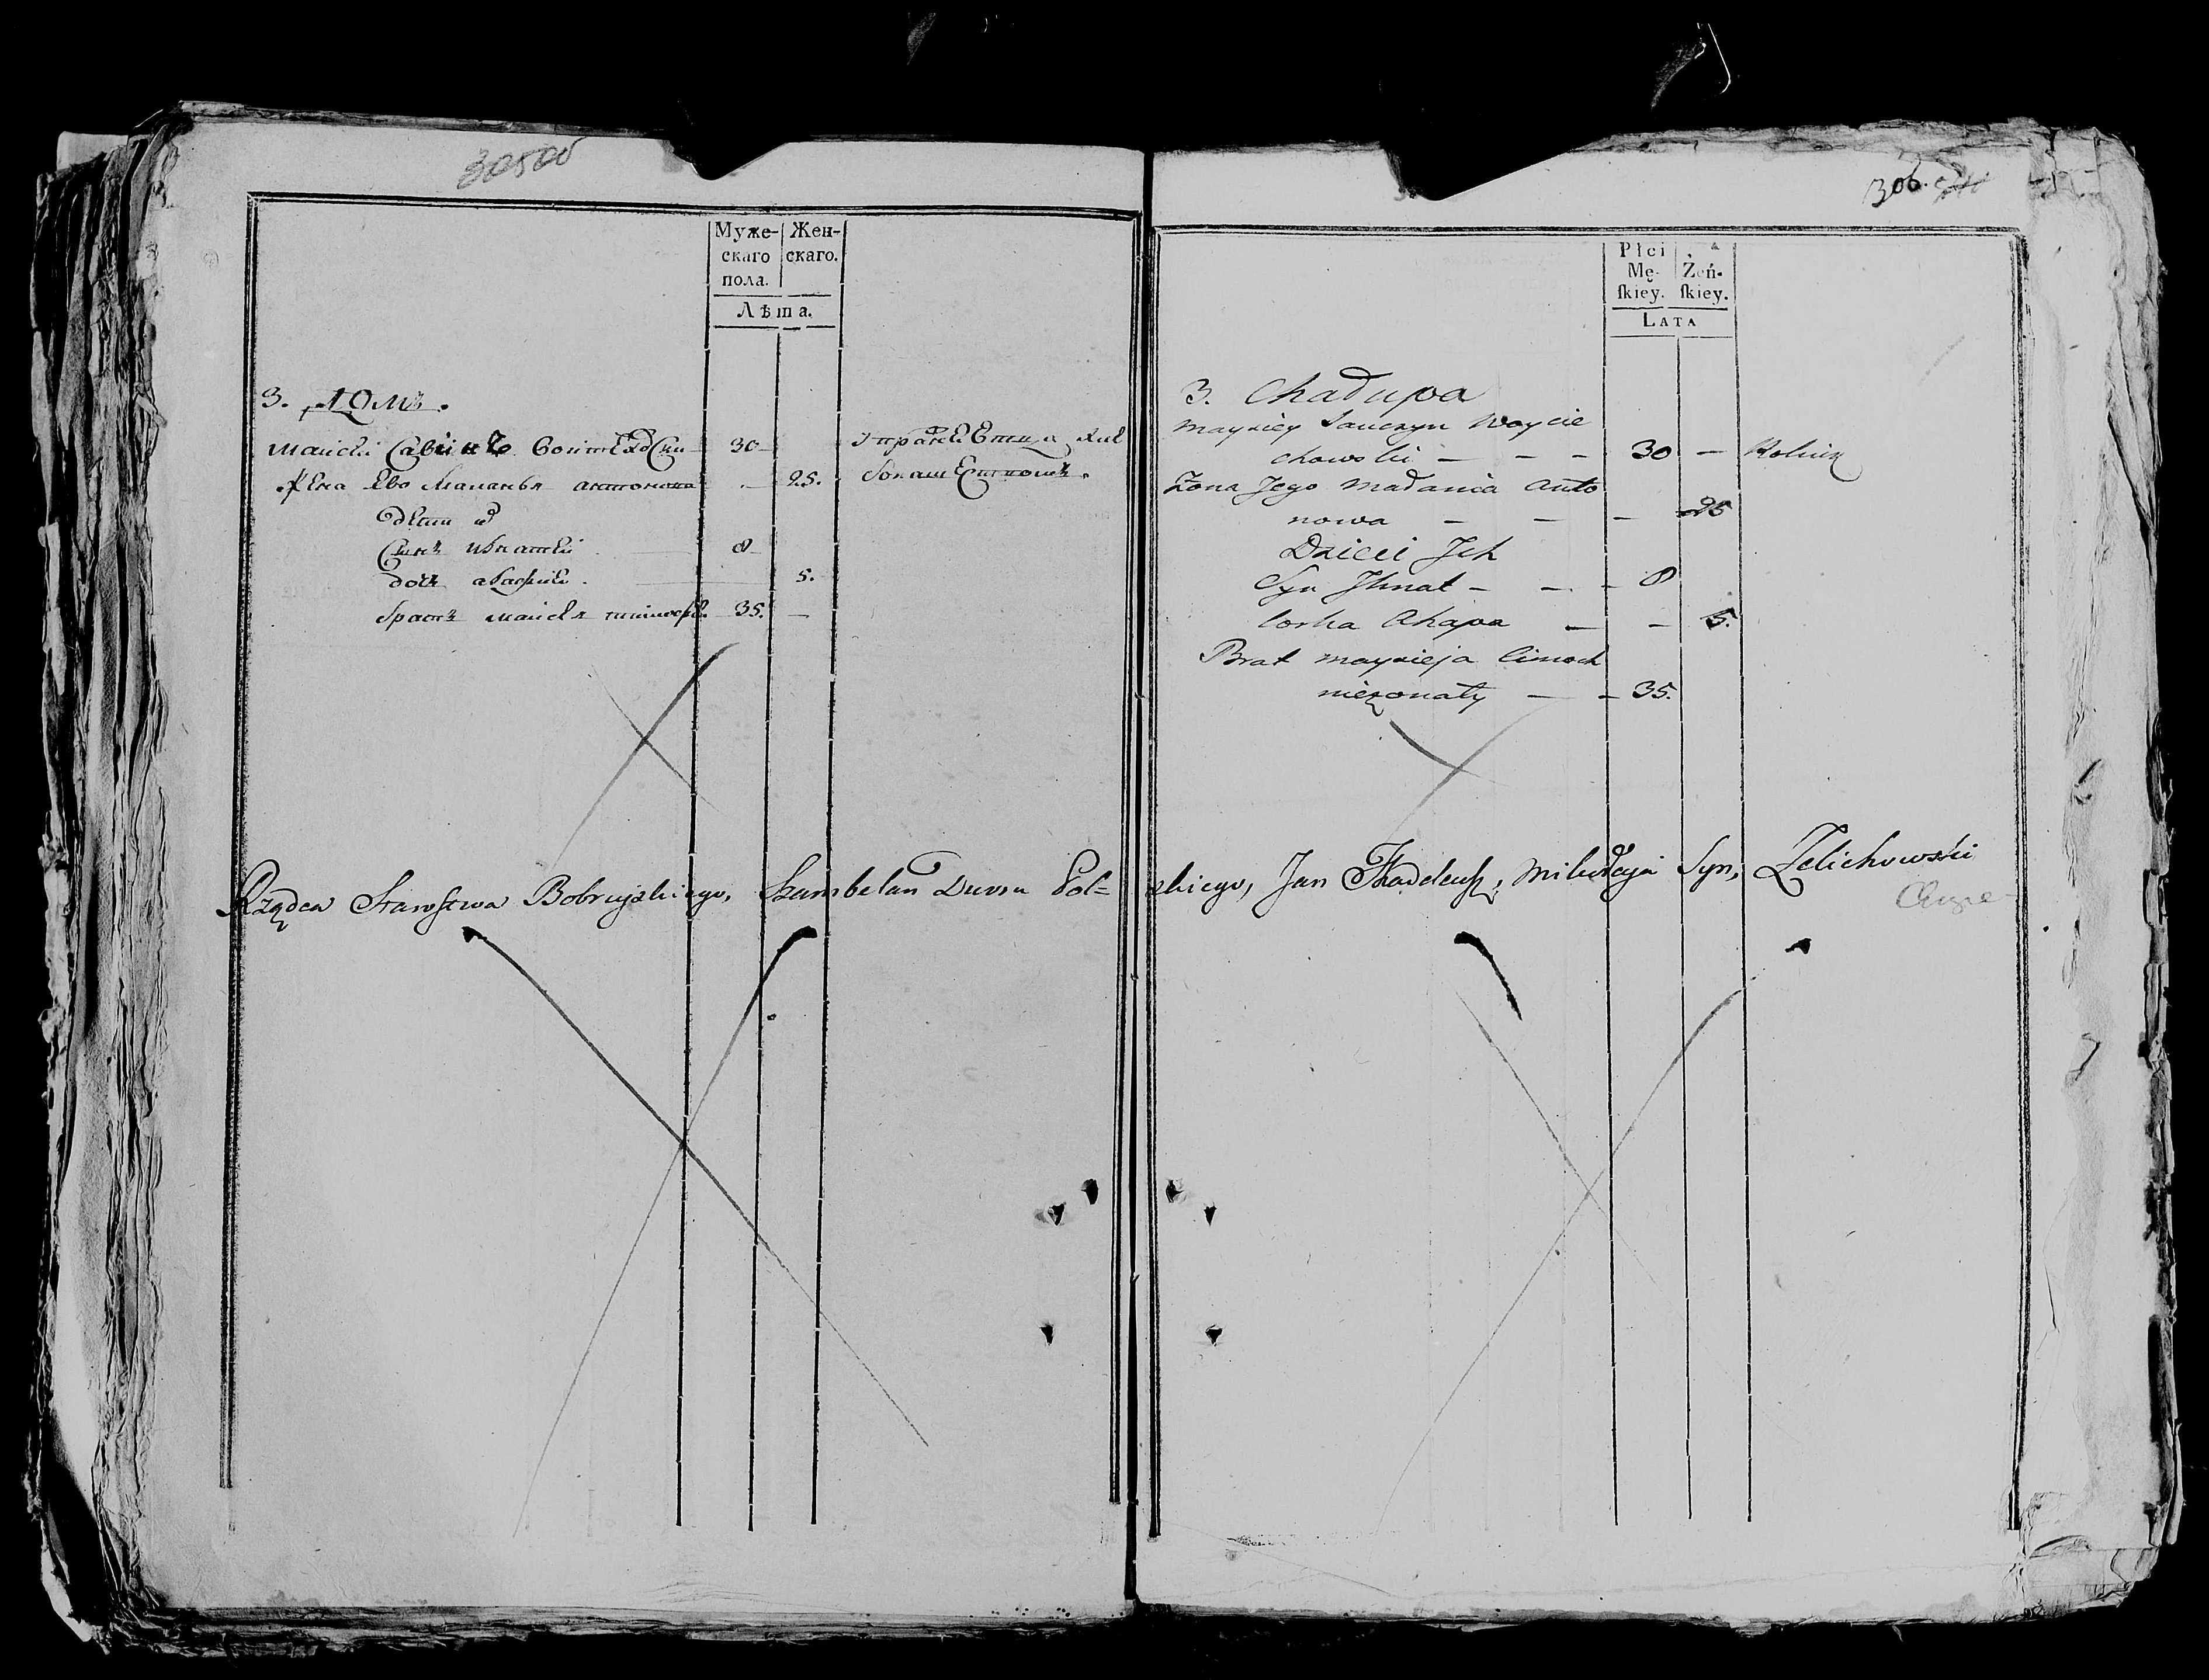 305об
Муже-
скаго
пола.
Жен-
скаго.
Лѣта.
3. Домъ.
Маисей Савинъ Войтеховски 30
Жена Ево Маланья Антонова 25.
дети и
Сынъ Игнатей 8
дочь Агафия 5.
братъ Маисея Тимофей 35.
306.
Płci
Mę-
ſkiey.
Żeń-
ſkiey.
LATA
3. Chałupa
Mayziey Sawczyn Woycie
chowski — — — 30 — Rolnik
Żona Jego Małania Anto
nowa — — — 25
Dzieci Jch
Syn Jhnat — — — 8
Corka Ahapa — — 5.
Brat Mayzieja Cimoch
nieżonaty — — 35.
Rządca Starostwa Bobruyskiego, Szambelan Dworu Pol=
skiego, Jan Thadeusz, Mikołaja Syn, Zelichowski